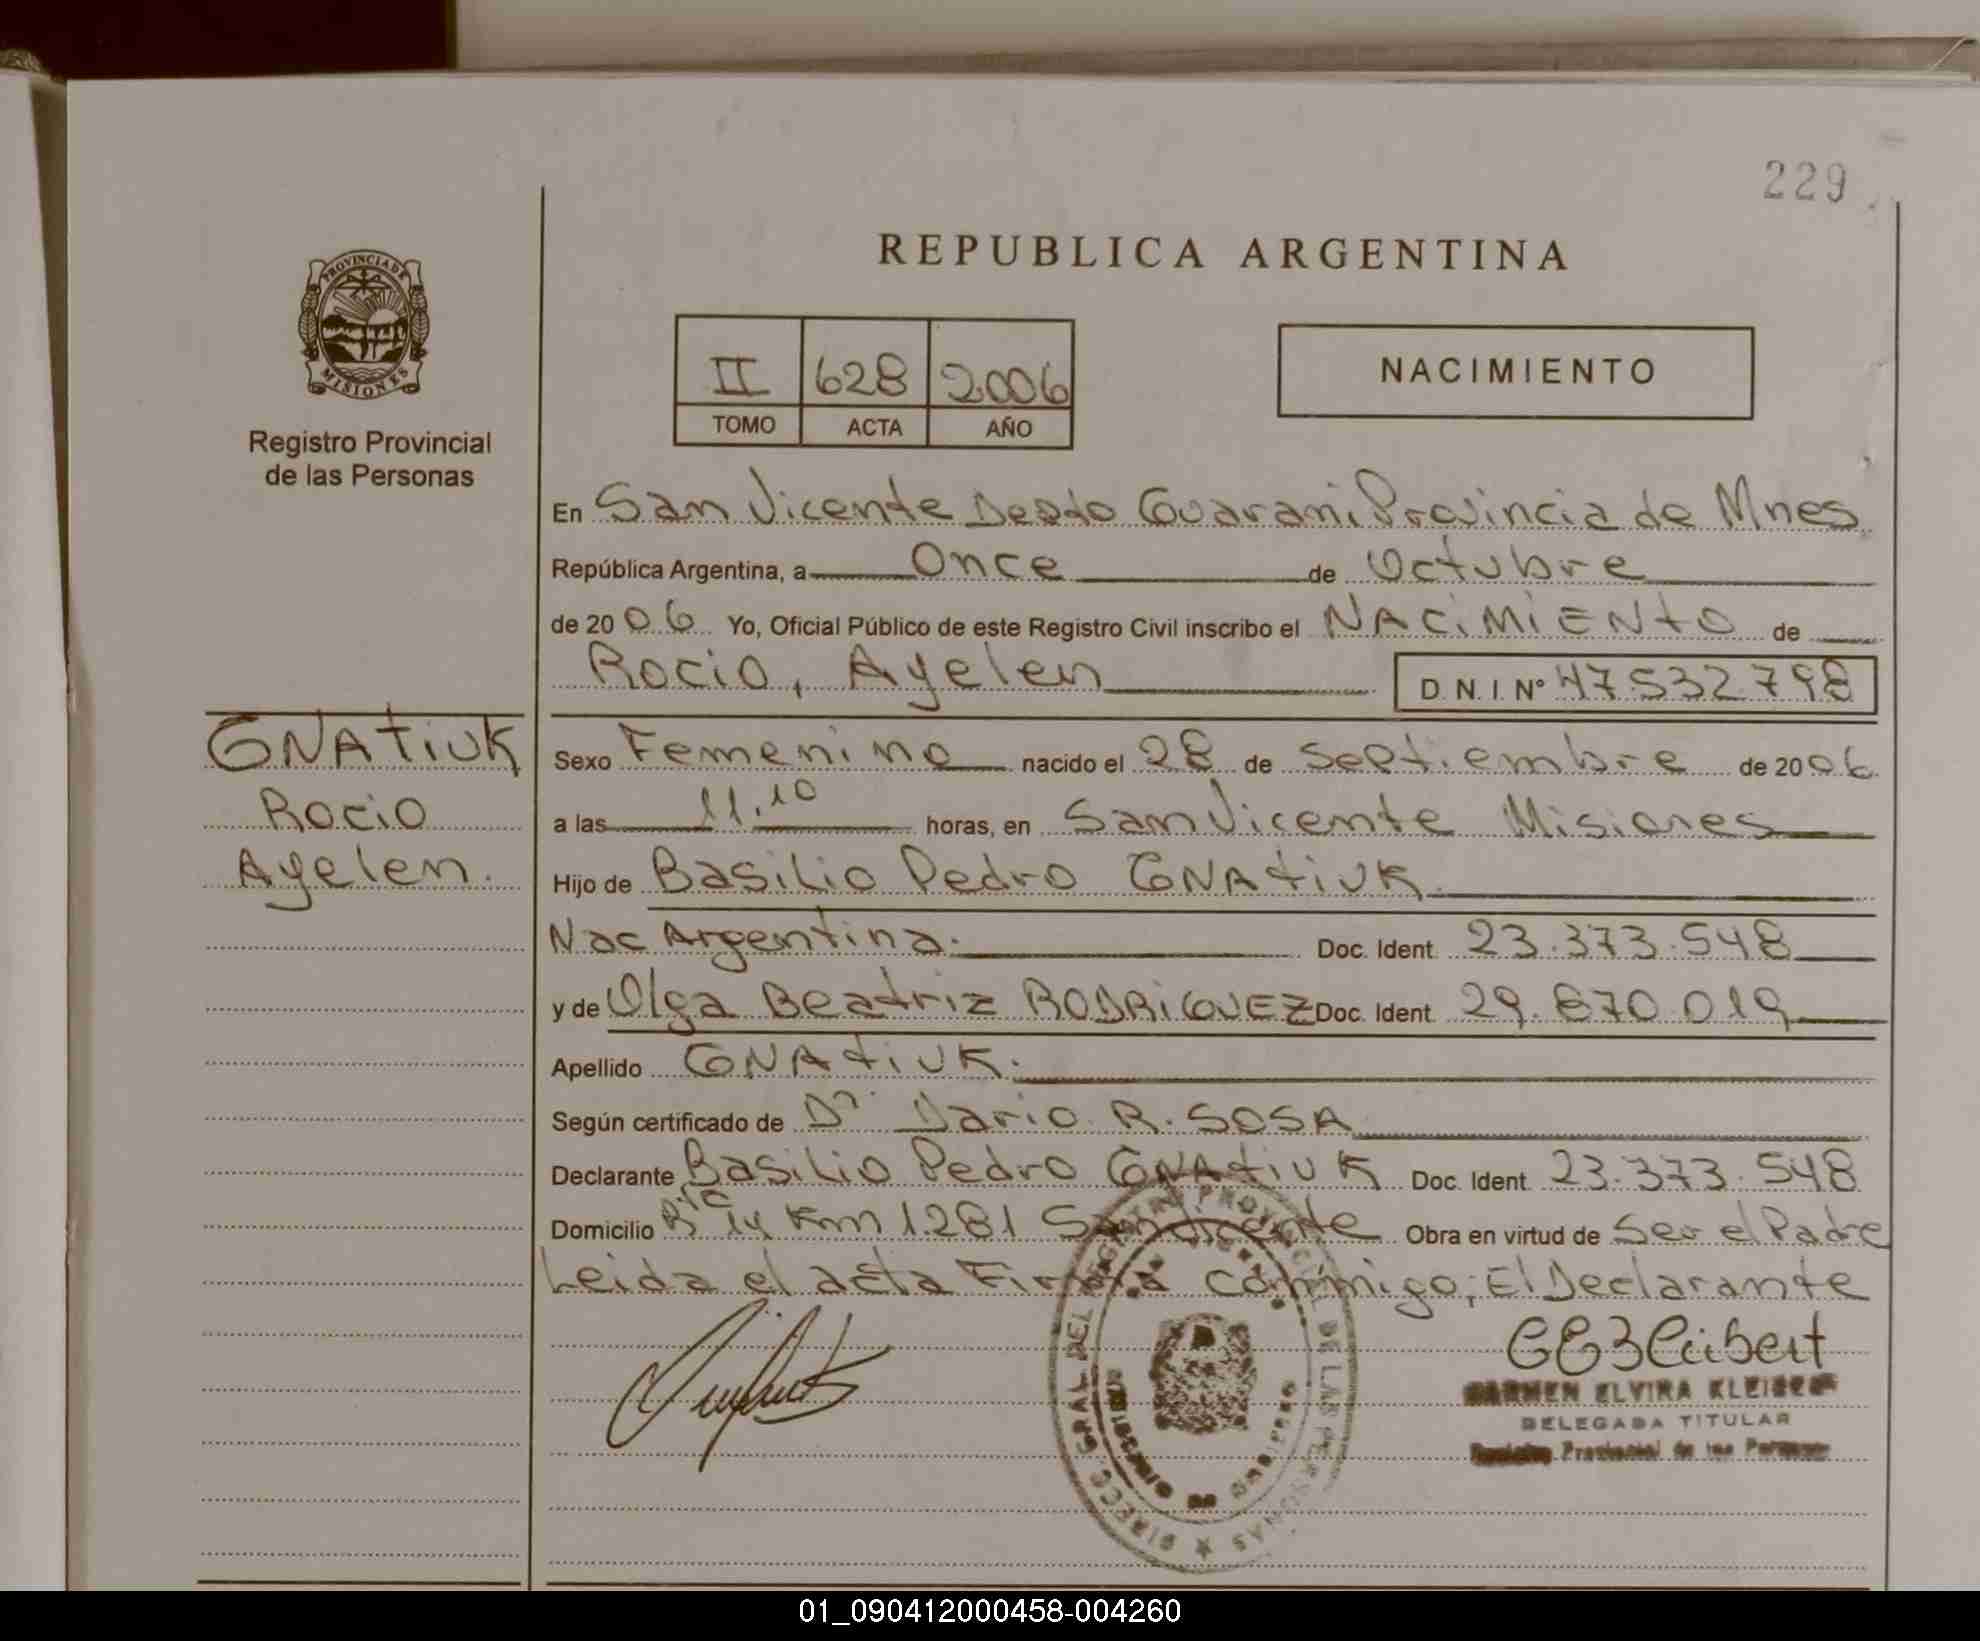 229
PROVINCIA DE
MISIONES
Registro Provincial
de las Personas
REPUBLICA ARGENTINA
II 628 2006
TOMO ACTA AÑO
NACIMIENTO
En San Vicente Depto Guarani, Provincia de Mnes
República Argentina, a Once de Octubre
de 2006 Yo, Oficial Público de este Registro Civil inscribo el NACIMIENTO de
Rocio, Ayelen D.N.I. Nº 47.532.798
GNATIUK
Rocio
Ayelen.
Sexo Femenino nacido el 28 de Septiembre de 2006
a las 11.10 horas, en San Vicente Misiones
Hijo de Basilio Pedro GNATIUK
Nac Argentina. Doc. Ident. 23.373.548
y de Olga Beatriz RODRIGUEZ Doc. Ident. 29.870.019
Apellido GNATIUK.
Según certificado de Dr. Dario R. SOSA
Declarante Basilio Pedro GNATIUK Doc. Ident. 23.373.548
Domicilio Rta 14 Km 1281 San Vicente Obra en virtud de Ser el Padre
Leida el acta Firma conmigo; El Declarante
DIRECC. GRAL. DEL REGISTRO PROVINCIAL DE LAS PERSONAS
CARMEN ELVIRA KLEIBERT
DELEGADA TITULAR
Registro Provincial de las Personas
01_090412000458-004260